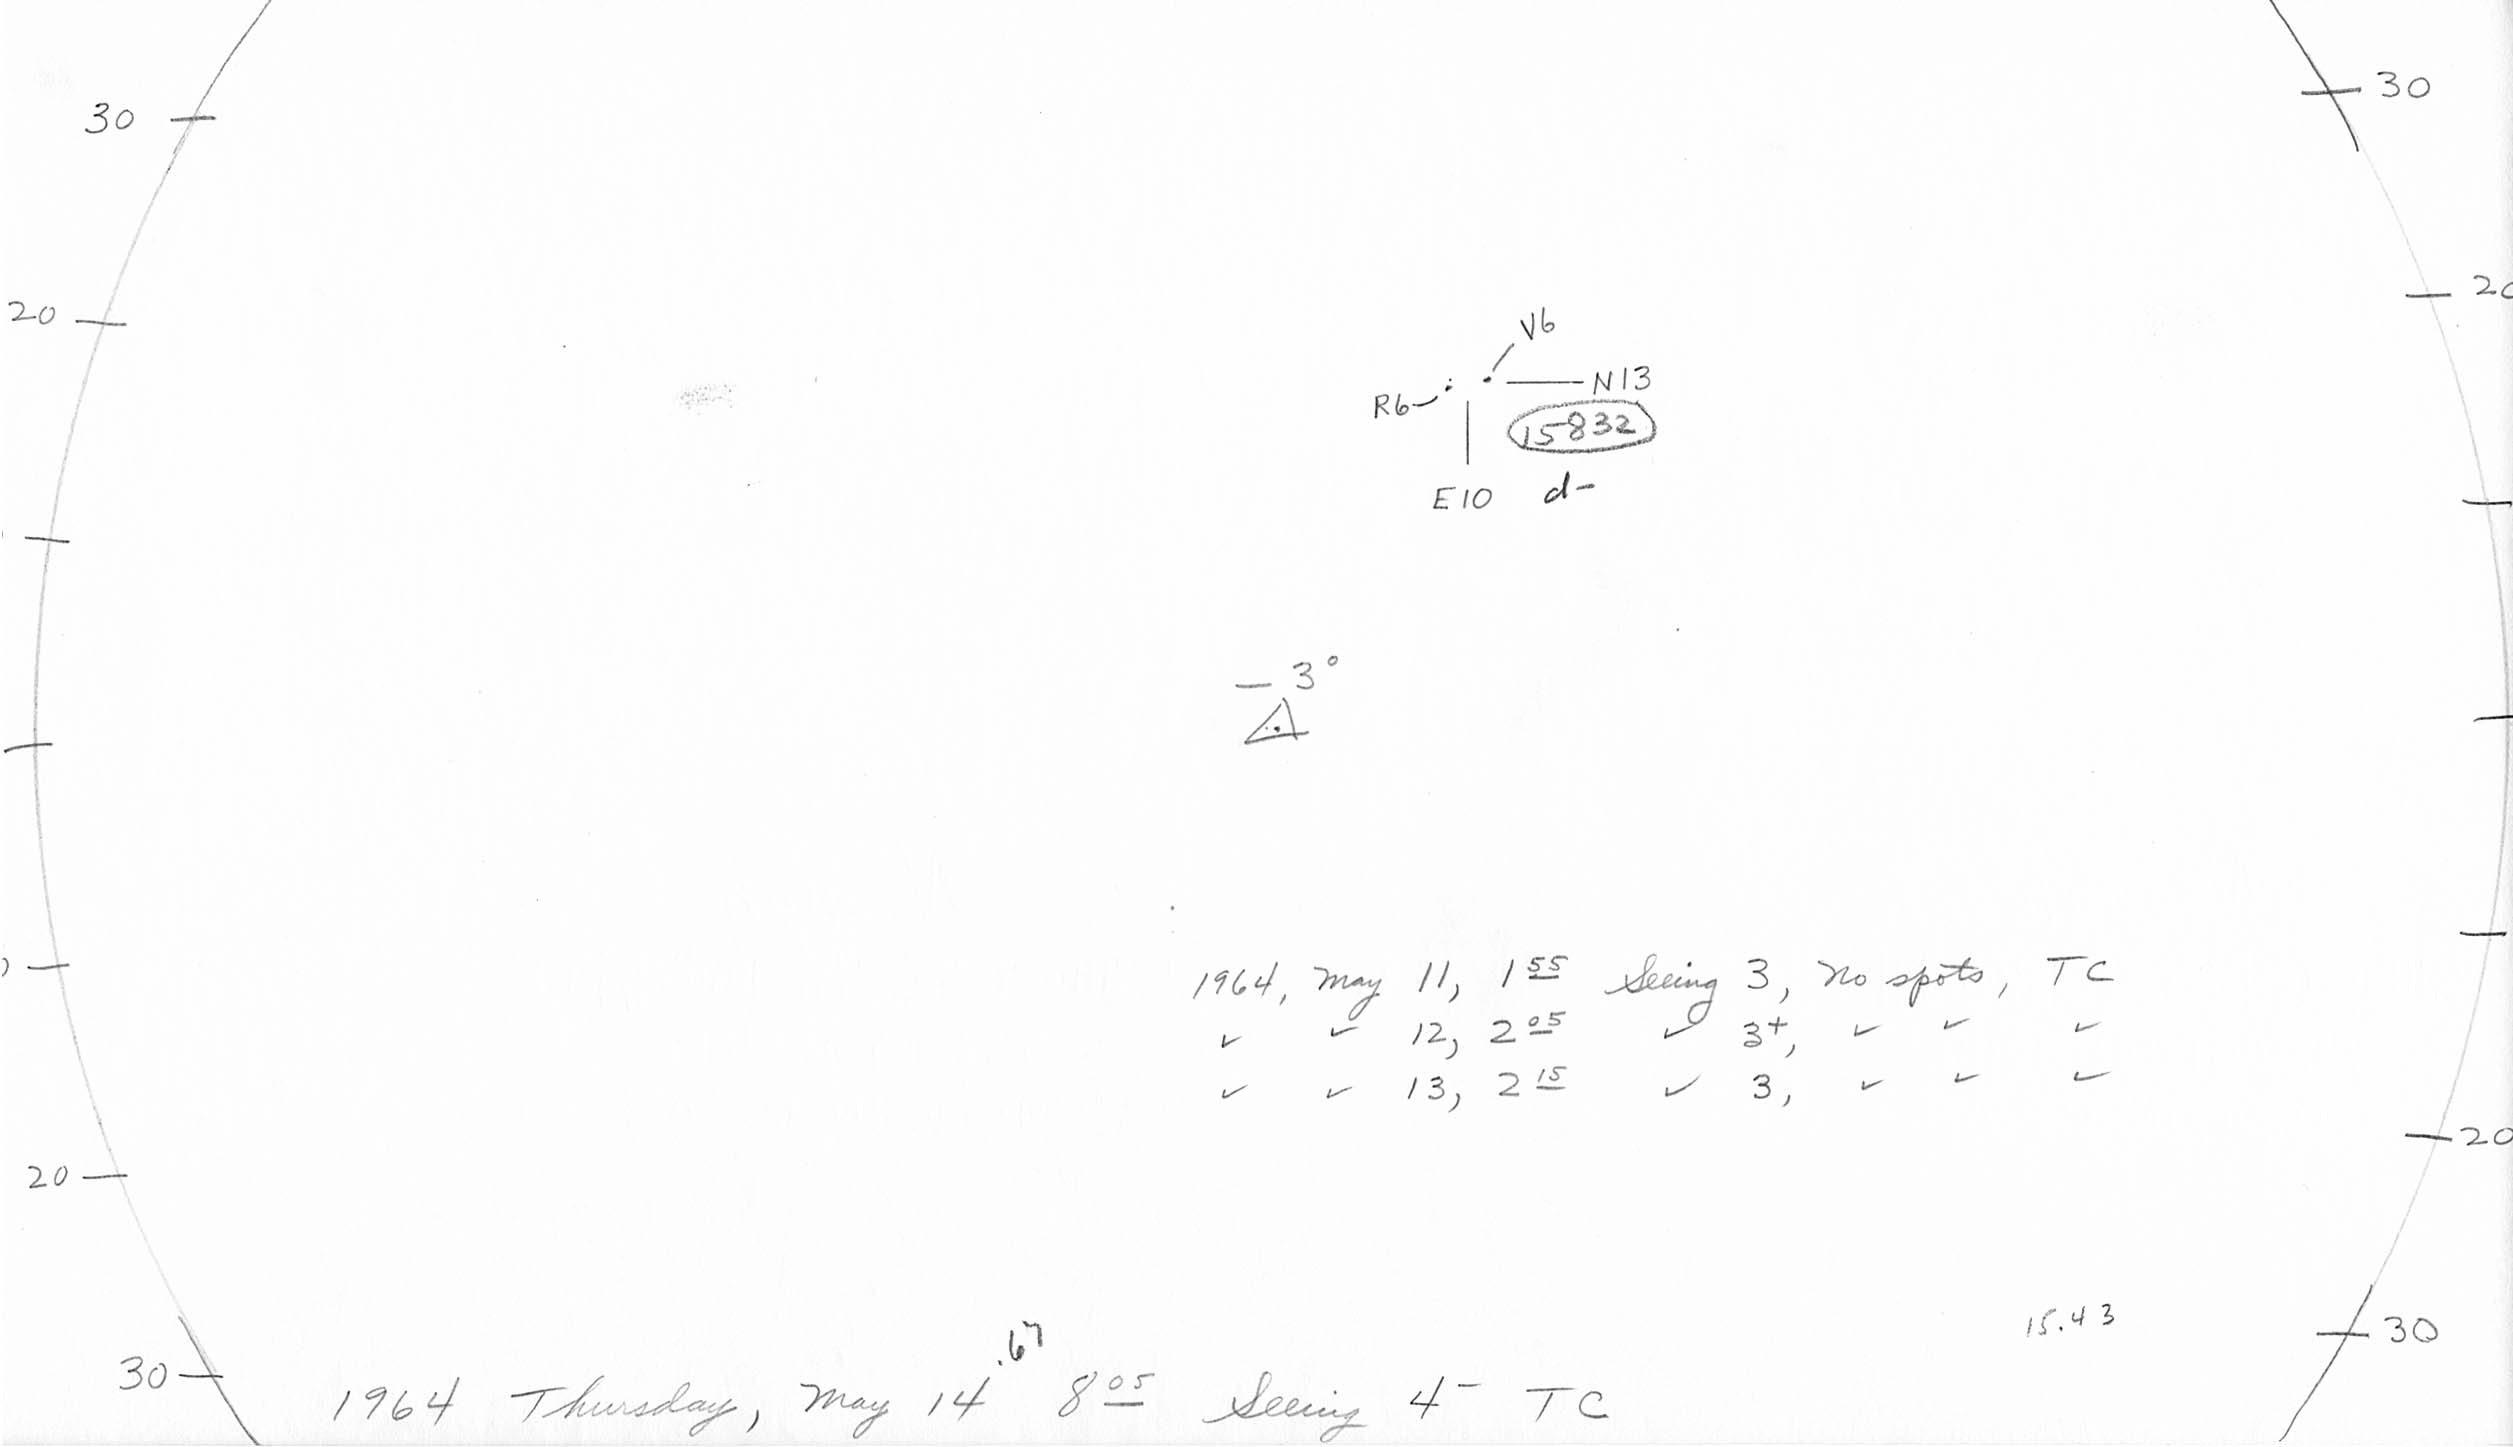 30
30
20
20
V6
N13
R6
15832
E10 d-
- 3°
1964, May 11, 1 55 Seeing 3, No spots, TC
✓ ✓ 12, 2 05 ✓ 3+, ✓ ✓ ✓
✓ ✓ 13, 2 15 ✓ 3, ✓ ✓ ✓
20
20
15.43
30
30
.67
1964 Thursday, May 14 8 05 Seeing 4- TC